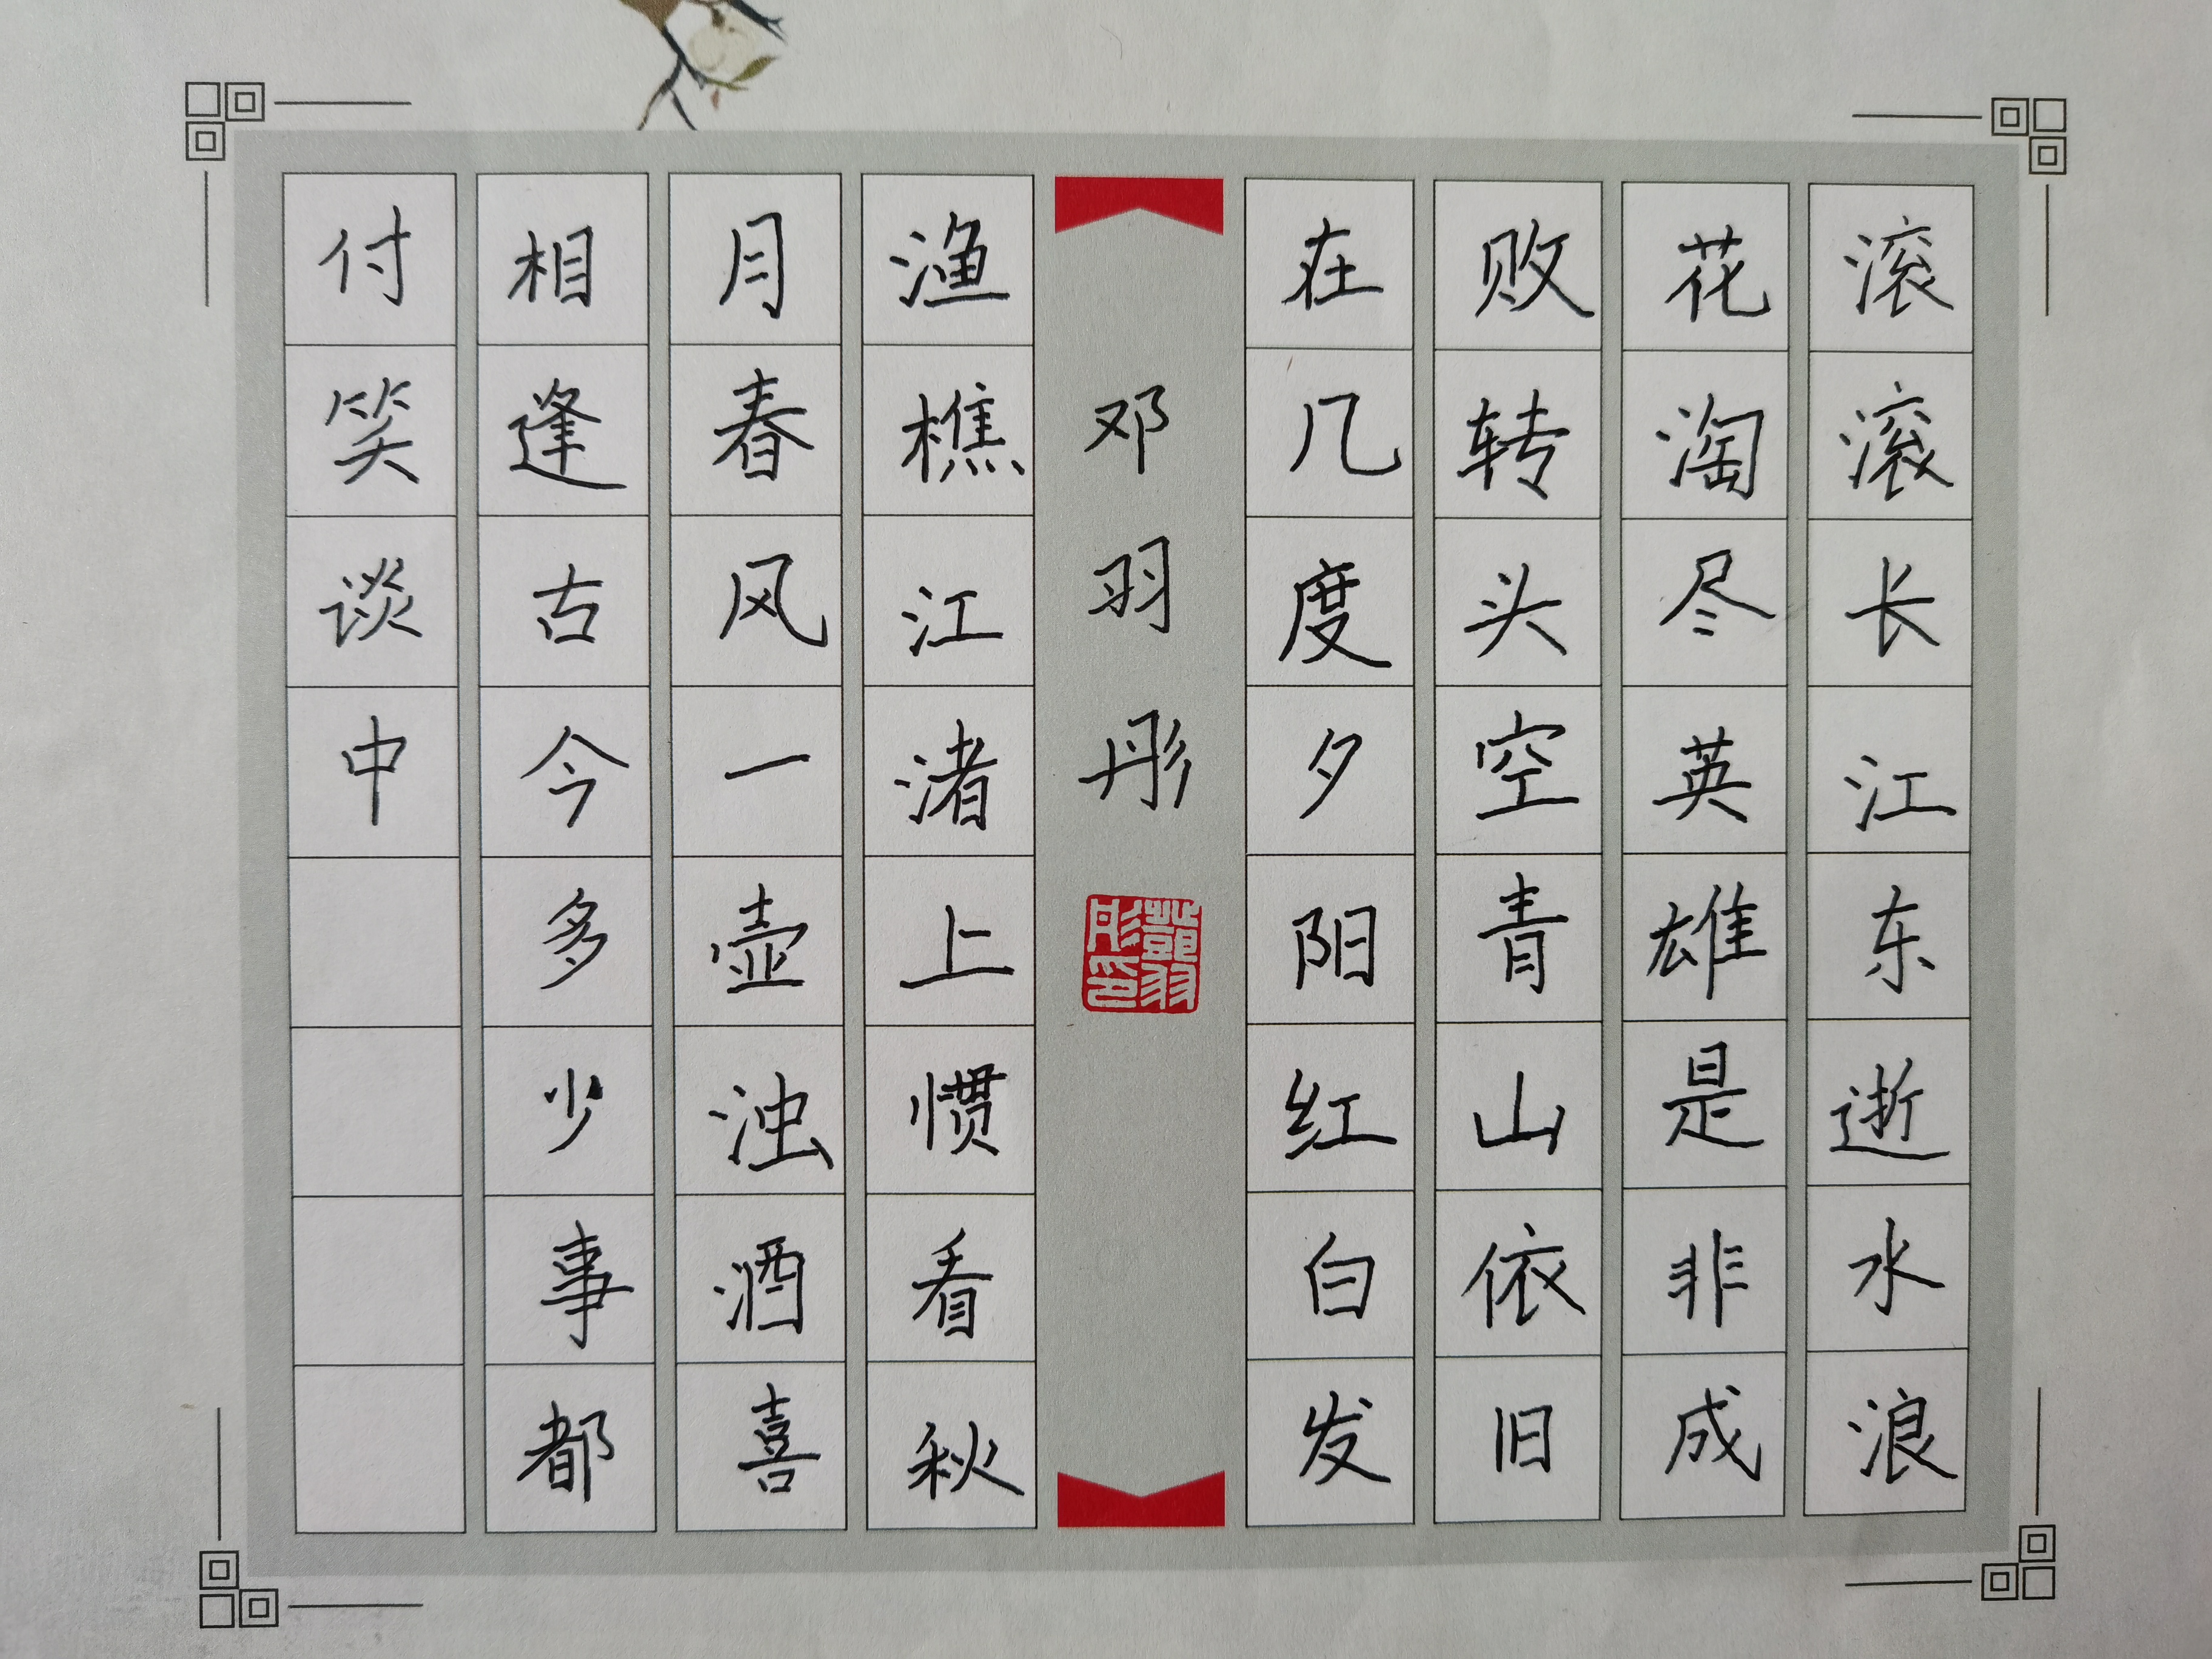 滚滚长江东逝水浪
花淘尽英雄是非成
败转头空青山依旧
在几度夕阳红白发
邓羽彤
鄧羽
彤印
渔樵江渚上惯看秋
月春风一壶浊酒喜
相逢古今多少事都
付笑谈中